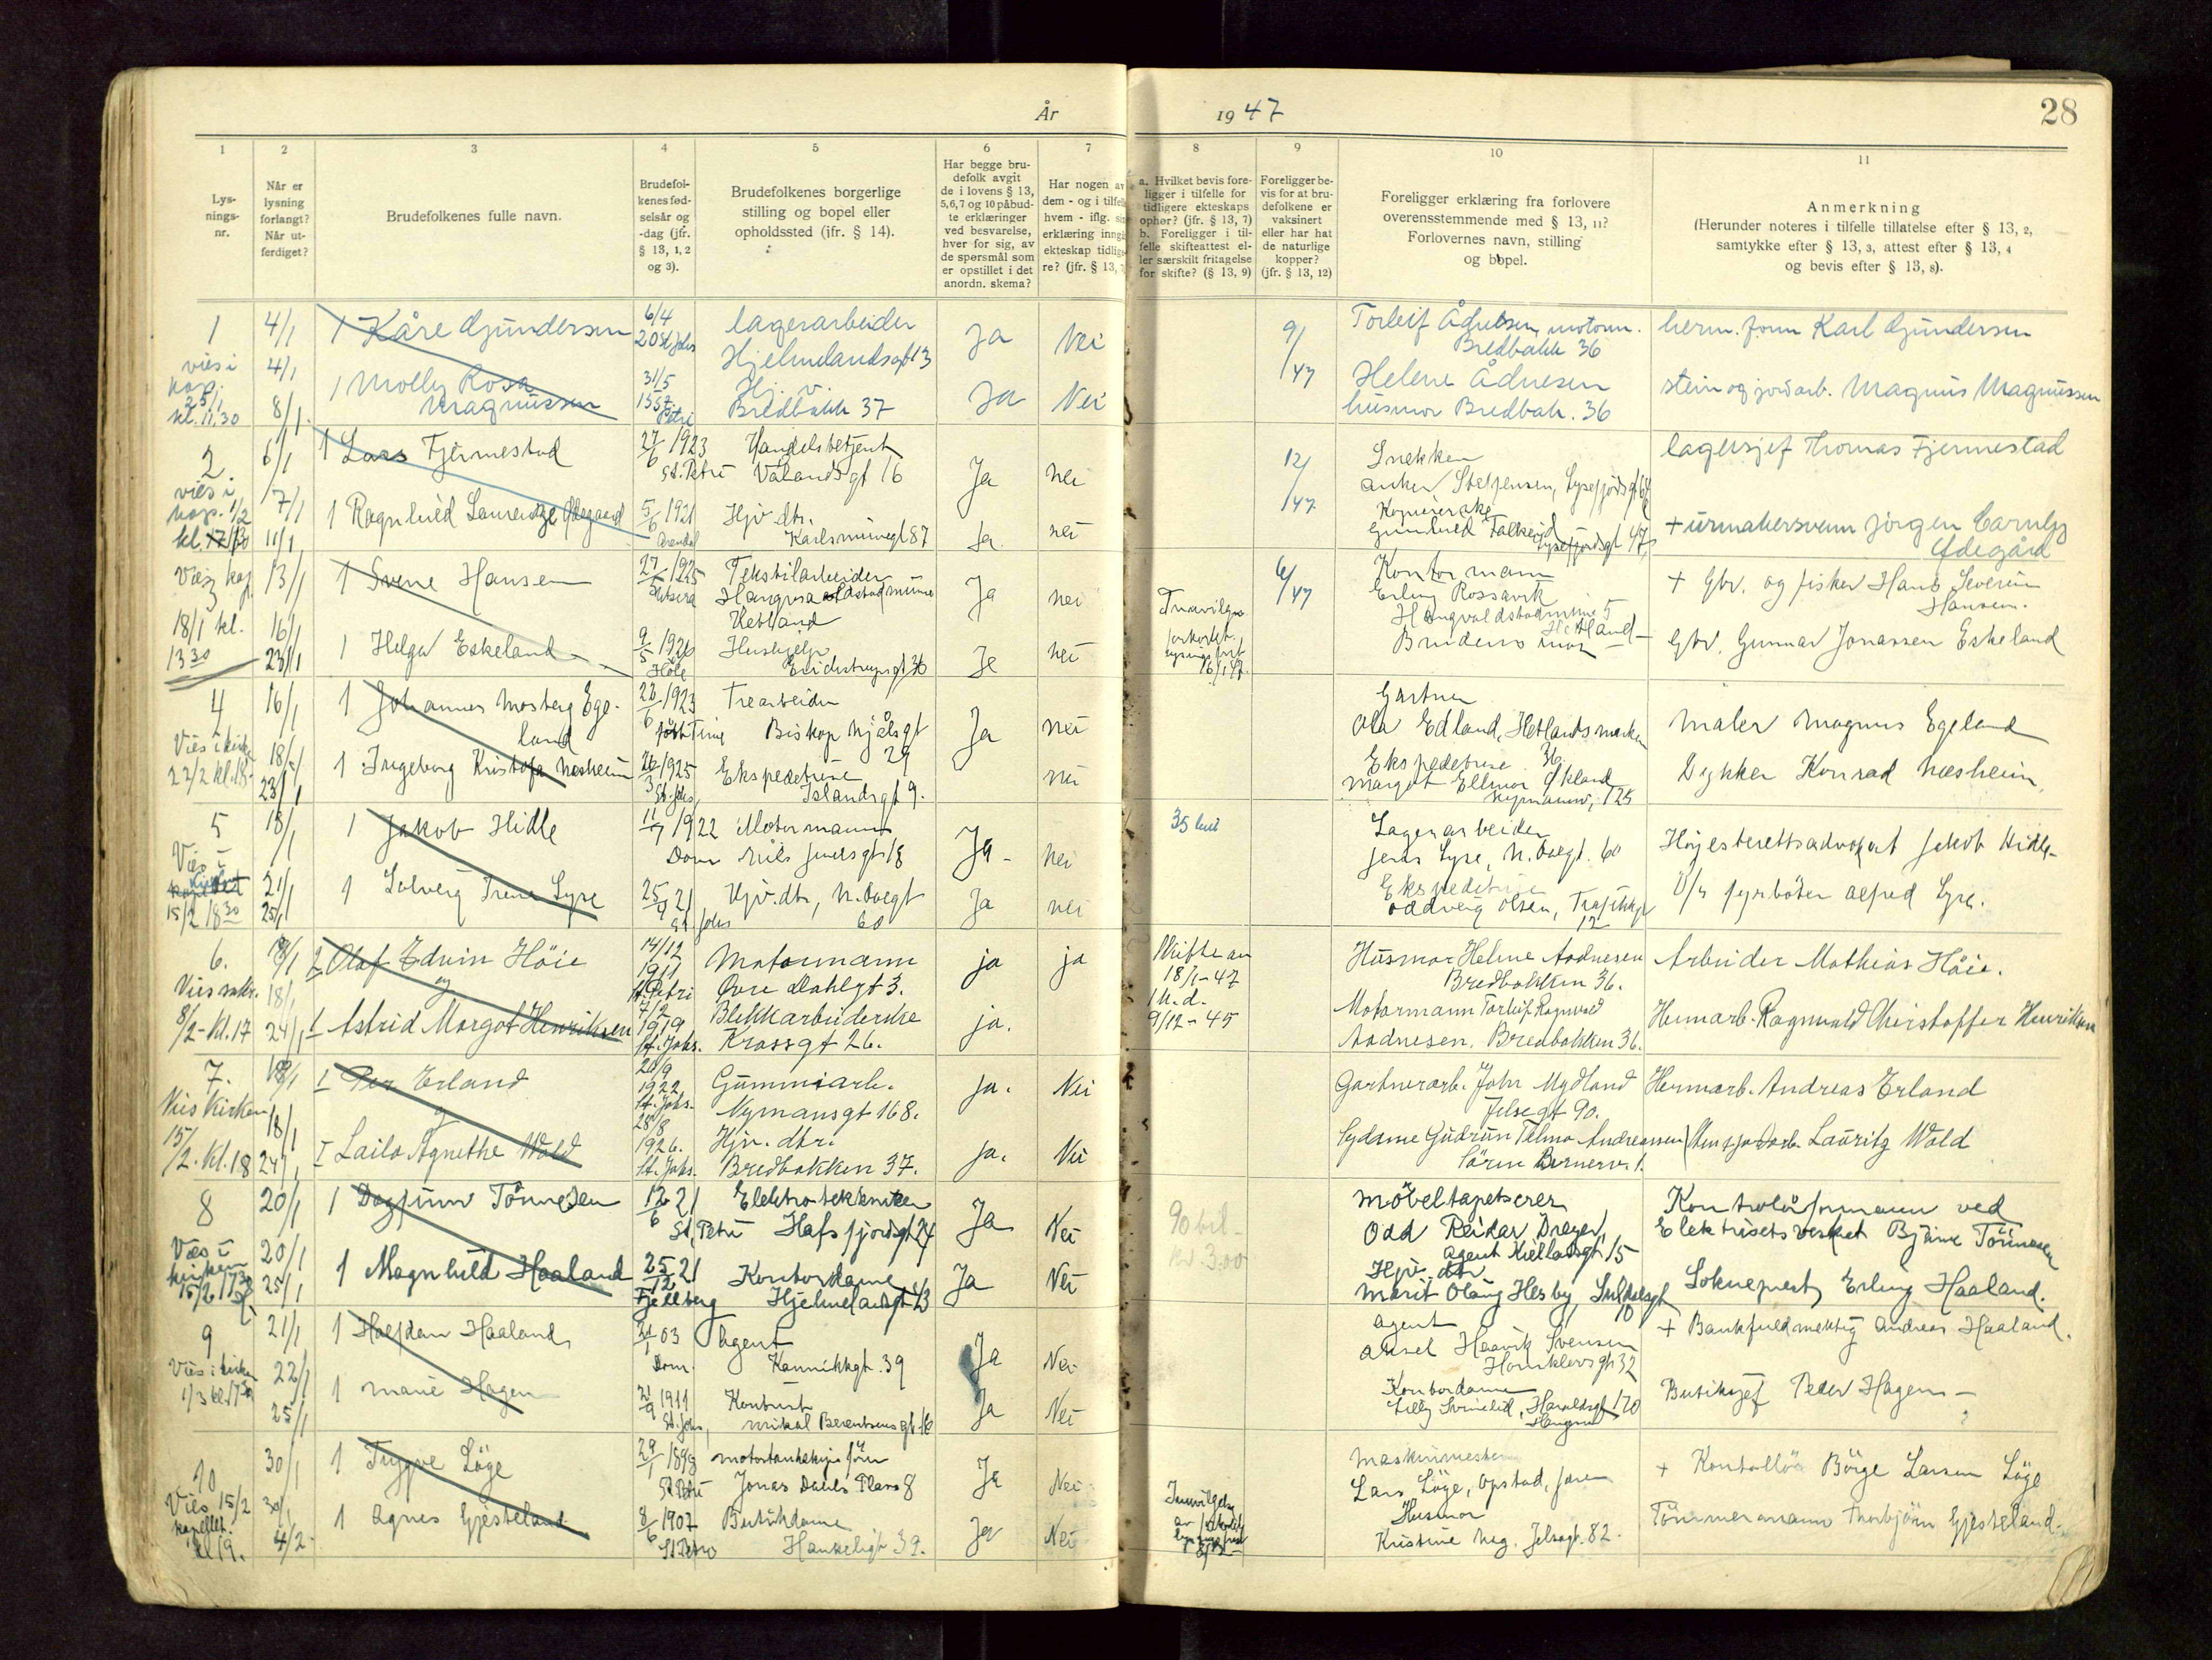 År
19 47
28
1
Lys-
nings-
nr.
2
Når er
lysning
forlangt?
Når ut-
ferdiget?
3
Brudefolkenes fulle navn.
4
Brudefol-
kenes fød-
selsår og
-dag (jfr.
§ 13, 1, 2
og 3).
5
Brudefolkenes borgerlige
stilling og bopel eller
opholdssted (jfr. § 14).
6
Har begge bru-
defolk avgit
de i lovens § 13,
5,6,7 og 10 påbud-
te erklæringer
ved besvarelse,
hver for sig, av
de spørsmål som
er opstillet i det
anordn. skema?
7
Har nogen av
dem - og i tilfelle
hvem - iflg.
erklæring inngå
ekteskap tidlige
re? (jfr. § 13,
8
a. Hvilket bevis fore-
ligger i tilfelle for
tidligere ekteskaps
ophør? (jfr. § 13, 7)
b. Foreligger i til-
felle skifteattest el-
ler særskilt fritagelse
for skifte? (§ 13, 9)
9
Foreligger be-
vis for at bru-
defolkene er
vaksinert
eller har hat
de naturlige
kopper?
(jfr. § 13, 12)
10
Foreligger erklæring fra forlovere
overensstemmende med § 13, 11?
Forlovernes navn, stilling
og bopel.
11
Anmerkning
(Herunder noteres i tilfelle tillatelse efter § 13, 2,
samtykke efter § 13, 3, attest efter § 13, 4
og bevis efter § 13, 8).
1
vies i
kap.
25/1
kl. 11,30
4/1
4/1
8/1
1 Kåre Gundersen
6/4
20 St. Johs
lagerarbeider
Hjelmelandsgt 13
Ja
Nei
9/1 47
Torleif Ådnesen, motorm.
Bredbakk 36
herm. form Karl Gundersen
1 Molly Rosa
Magnussen
31/5
Petri
Hj. v.
Bredbakk 37
Ja
Nei
Helene Ådnesen
husmor Bredbak. 36
stein og jordarb. Magnus Magnussen
2.
vies i
kap. 1/2
kl.
6/1
7/1
11/1
1 Lars Fjermestad
27/6 1923
St. Petri
Handelsbetjent
Vålandsgt 16
Ja
nei
12/1 47
Snekker
Anker Steffensen, Lysefjordsgt 67
lagersjef Thomas Fjermestad
1 Ragnhild Laurentze Ødegaard
5/6 1921
Arendal
Hjv. dtr.
Karlsminnegt 87
Ja
nei
Gunhild Falkeid
Lysefjordsgt 47
+ urmakersvenn Jörgen Carnly
Ødegård
Vies kap
3
18/1 kl.
13 30
13/1
16/1
23/1
1 Sverre Hansen
27/ 1925
Tekstilarbeider
Hetland
Ja
nei
6/1 47
Kontormann
Erling Rossavik
Haugvaldstadminne 5
Hetland
+ Gbr. og fisker Hans Severin
Hansen.
1 Helga Eskeland
9/5 1926
Höle
Hushjelp
Erichstrupsgt 36
Ja
nei
16/1 47.
Brudens mor
Gbr. Gunnar Jonassen Eskeland
4
Vies i kirken
22/2 kl. 18
16/1
18/1
23/1
1 Johannes Mosberg Ege-
land
23/6 1923
Time
Trearbeider
Biskop Njålsgt
29
Ja
nei
Gartner
Ola Edland, Hetlandsmarken
36
Maler Magnus Egeland
1 Ingeborg Kristofa Næsheim
26/3 1925
St. Johs,
Ekspeditrise
Islandsgt 9.
nei
Ekspeditrise
Margot Ellinor Økland
Nymansv, 125
Dykker Konrad Næsheim
5
Vies i
kirken
15/2 18 30
18/1
21/1
25/1
1 Jakob Hidle
11/7 1922
Dom
Motormann
Nils Juelsgt 18
Ja
nei
Lagerarbeider
Jens Lyse, N. Dvegt. 60
Højesterettsadvokat Jakob Hidle
1 Solveig Irene Lyse
25/9 21
St. Johs
Hjv. dtr, N. Dvegt
60
Ja
nei
Ekspeditrise
Oddveig Olsen, Trafikkgt
12
fyrböter Alfred Lyse.
6.
Vies sakr.
8/2 - Kl. 17
18/1
18/1
24/1
2 Olaf Edvin Höie
og
14/12
1911
St. Petri
Motormann
Øvre Dahlgt 3.
ja
ja
Skifte av
18/1 - 47
9/12 - 45
Husmor Helene Aadnesen
Bredbakken 36.
Arbeider Mathias Höie.
1 Astrid Margot Henriksen
7/2
1919
St. Johs.
Blekkarbeiderske
Krossgt 26.
ja.
Motormann Torleif Ragnvald
Aadnesen, Bredbakken 36.
Hermarb. Ragnvald Christoffer Henriksen
7.
Vies Kirken
15/2. kl. 18
18/1
18/1
24/1
1 Per Erland
og
20/9
1922
St. Johs.
Gummiarb.
Nymansgt 168.
ja.
Nei
Gartnerarb. John Mydland
Jelsegt 90.
Hermarb. Andreas Erland
1 Laila Agnethe Wold
28/8
1926.
St. Johs.
Hjv. dtr.
Bredbakken 37.
ja.
Nei
Sydame Gudrun Telma Andreassen
Sören Bernersv. 1.
Lauritz Wold
8
Vies i
kirken
15/2 17 30
20/1
20/1
25/1
1 Dagfinn Tönnesen
12/6 21
St. Petri
Elektrotekniker
Hafsfjordsgt 24
Ja
Nei
90
kr. 3.00
Möbeltapetserer
Odd Reidar Dreyer,
Agent Kiellandsgt 15
Kontrolörformann ved
Elektrisitetsverket Bjarne Tönnesen
1 Magnhild Haaland
25/12 21
Fjellberg
Kontordame
Hjelmelandsgt 43
Ja
Nei
Hjv. dtr
Marit Olaug Hesby, Suldalsgt
10
Sokneprest Erling Haaland.
9
Vies i kirken
1/3 kl 17 30
21/1
22/1
25/1
1 Halfdan Haaland
21/1 03
Dom.
Agent
Kannikkgt. 39
Ja
Nei
Agent
Aksel Haavik Svensen
Hornklovsgt 32
+ Bankfuldmektig Andreas Haaland.
1 Marie Hagen
21/9 1911
St. Johs,
Kontorist
Mikal Berentsensgt 16
Ja
Nei
Kontordame
Lilly Svinelid, Haraldsgt 170
Haugesund
Butiksjef Peder Hagen
10
Vies 15/2
kapellet.
kl 19.
30/1
30/1
4/2
1 Trygve Löge
29/1 1898
St Petri
Jonas Dahls Plass 8
Ja
Nei
Maskinmester
Lars Löge, Opstad, Jæren
+ Kontollör Börge Larsen Löge
1 Agnes Gjesteland
8/6 1907
St Petri
Butikkdame
Haukeligt 39.
Ja
Nei
Innvilgelse
av
Husmor
Kristine Meg. Jelsagt. 82
Tömmermann Thorbjörn Gjesteland.